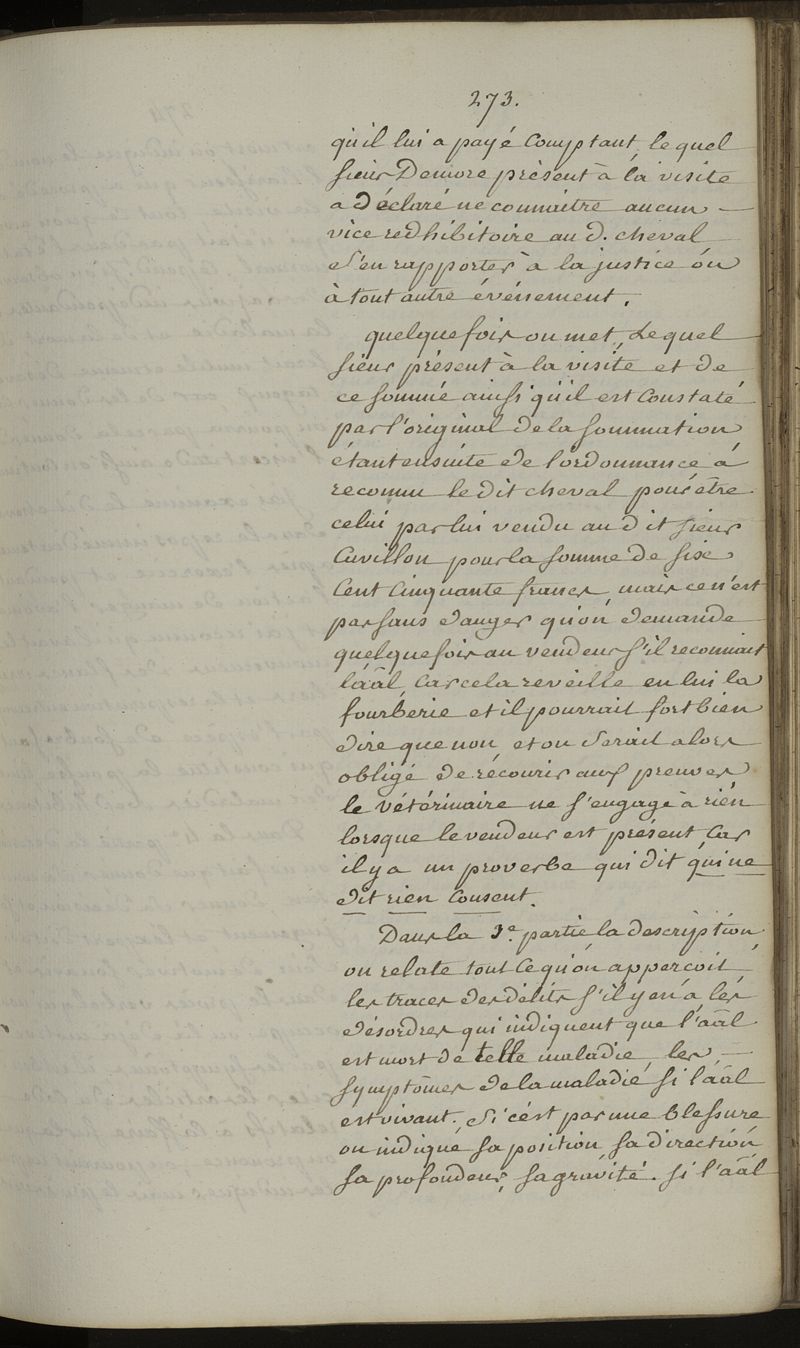 273.
qu'il lui a payé Comptant, le quel
sieur Demore présent à la visite
a Déclaré ne connaitre aucun —
vice redhibitoire au d. cheval
s'en rapporter à la justice ou
à tout autre événement.
quelquefois on met, Le quel
sieur présent à la visite et de
ce sommé ainsi qu'il est Constaté
par l'original de la sommation
étant ensuite de l'ordonnance a
reconnu le dit cheval pour être
celui par lui vendu au dit sieur
Cuvillon pour la somme de sixe
Cent Cinquante francs, mais ce n'est
pas sans danger qu'on demande
quelquefois au vendeur s'il reconnait
l'aâl, Car cela reveille en lui la
fourberie et il pourrait fort bien
dire que non, et on serait alors
obligé de récourir aux preuves
le vétérinaire ne s'engage à rien
lorsque le vendeur est présent Car
il y a un proverbe qui dit qui ne
dit rien Consent.
Dans la 3e. partie la description
on relate tout Ce qu'on apperçoit
les traces des délits s'il y en a, les
désordres qui indiquent que l'aâl
est mort de telle maladie, les —
symptômes de la maladie si l'aâl
est vivant. Si c'est par une blessure
on indique sa position, sa direction,
sa profondeur, sa gravité. si l'aâl